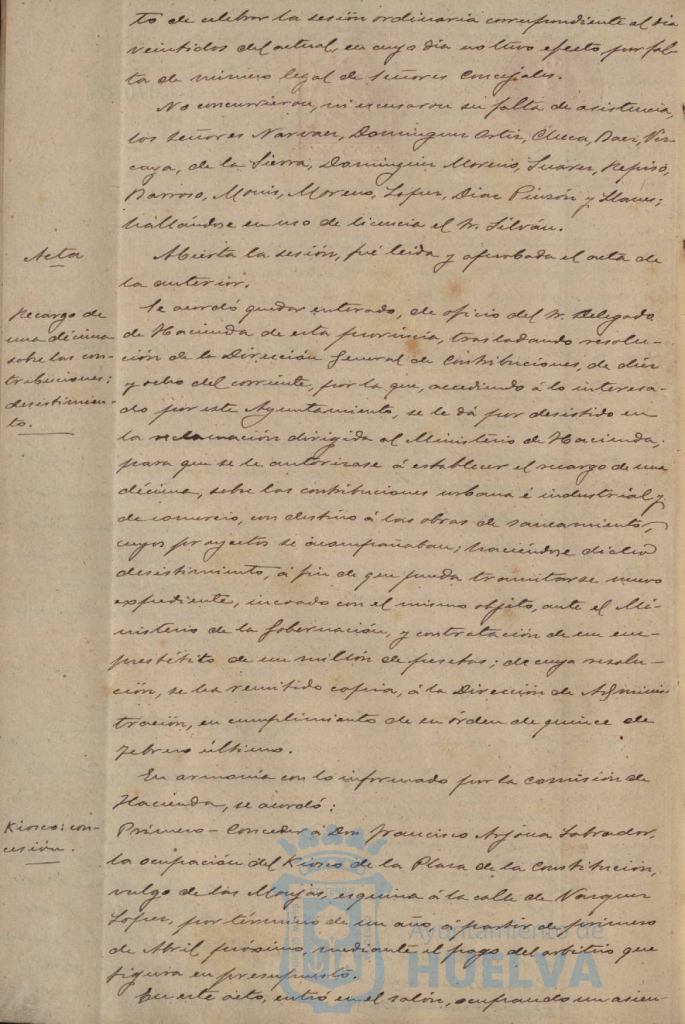 to de celebrar la sesión ordinaria correspondiente al dia
veintidos del actual, en cuyo dia no tuvo efecto por fal-
ta de número legal de Señores Concejales.
No concurrieron, ni escusaron su falta de asistencia,
los Señores Narvaez, Dominguez Ortiz, Checa, Baez, Viz-
caya, de la Sierra, Dominguez Moreno, Suarez, Repiso,
Barroso, Monis, Moreno, Lopez, Diaz Pinzón y Llanes;
hallándose en uso de licencia el Sr. Silván.
Acta
Abierta la sesión, fué leida y aprobada el acta de
la anterior.
Recargo de
una décima
sobre las con-
tribuciones:
desistimien-
to.
Se acordó quedar enterado, de oficio del Sr. Delegado
de Hacienda de esta provincia, trasladando resolu-
ción de la Dirección General de Contribuciones, de diez
y ocho del corriente, por la que, accediendo á lo interesa-
do por este Ayuntamiento, se le dá por desistido en
la reclamación dirigida al Ministerio de Hacienda,
para que se le autorizase á establecer el recargo de una
décima, sobre las contribuciones urbana é industrial y
de comercio, con destino á las obras de saneamiento,
cuyos proyectos se acompañaban; haciéndose dicho
desistimiento, á fin de que pueda tramitarse nuevo
expediente, incoado con el mismo objeto, ante el Mi-
nisterio de la Gobernación, y contratación de un em-
prestétito de un millón de pesetas; de cuya resolu-
ción, se ha remitido copia, á la Dirección de Adminis
tración, en cumplimiento de su órden de quince de
Febrero último.
En armonía con lo informado por la Comisión de
Hacienda, se acordó:
Kiosco: con-
cesión.
Primero - Conceder á Don Francisco Arjona Labrador,
la ocupación del Kiosco de la Plaza de la Constitución,
vulgo de las Monjas, esquina á la calle de Vazquez
Lopez, por término de un año, á partir de primero
de Abril próximo, mediante el pago del arbitrio que
figura en presupuesto.
En este acto, entró en el salón, ocupando un asien-
Ayuntamiento de
HUELVA